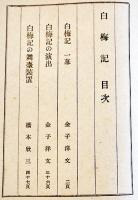 白梅記 目次
白梅記 一幕 金子洋文 二頁
白梅記の演出 金子洋文 三十六頁
白梅記の舞臺装置 橋本欣三 四十六頁